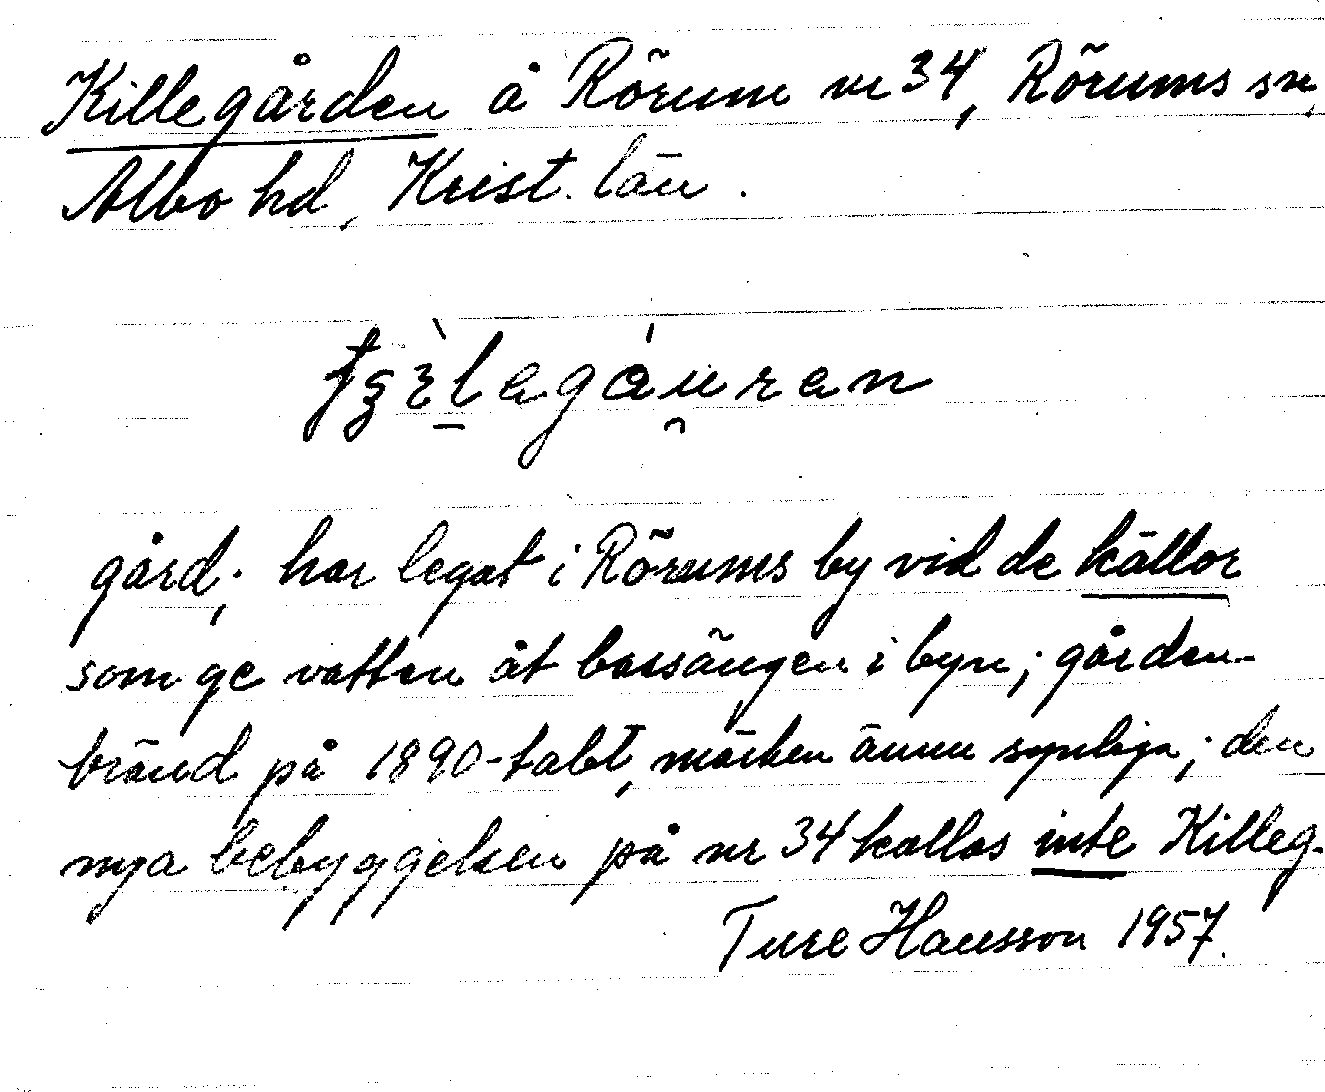 Killegården å Rörum nr 34, Rörums sn,
Albo hd, Krist. län.
gård; har legat i Rörums by vid de källor
som ge vatten åt bassängen i byn; gården
bränd på 1890-talet, märken ännu synliga; den
nya bebyggelsen på nr 34 kallas inte Killeg.
Ture Hansson 1957.